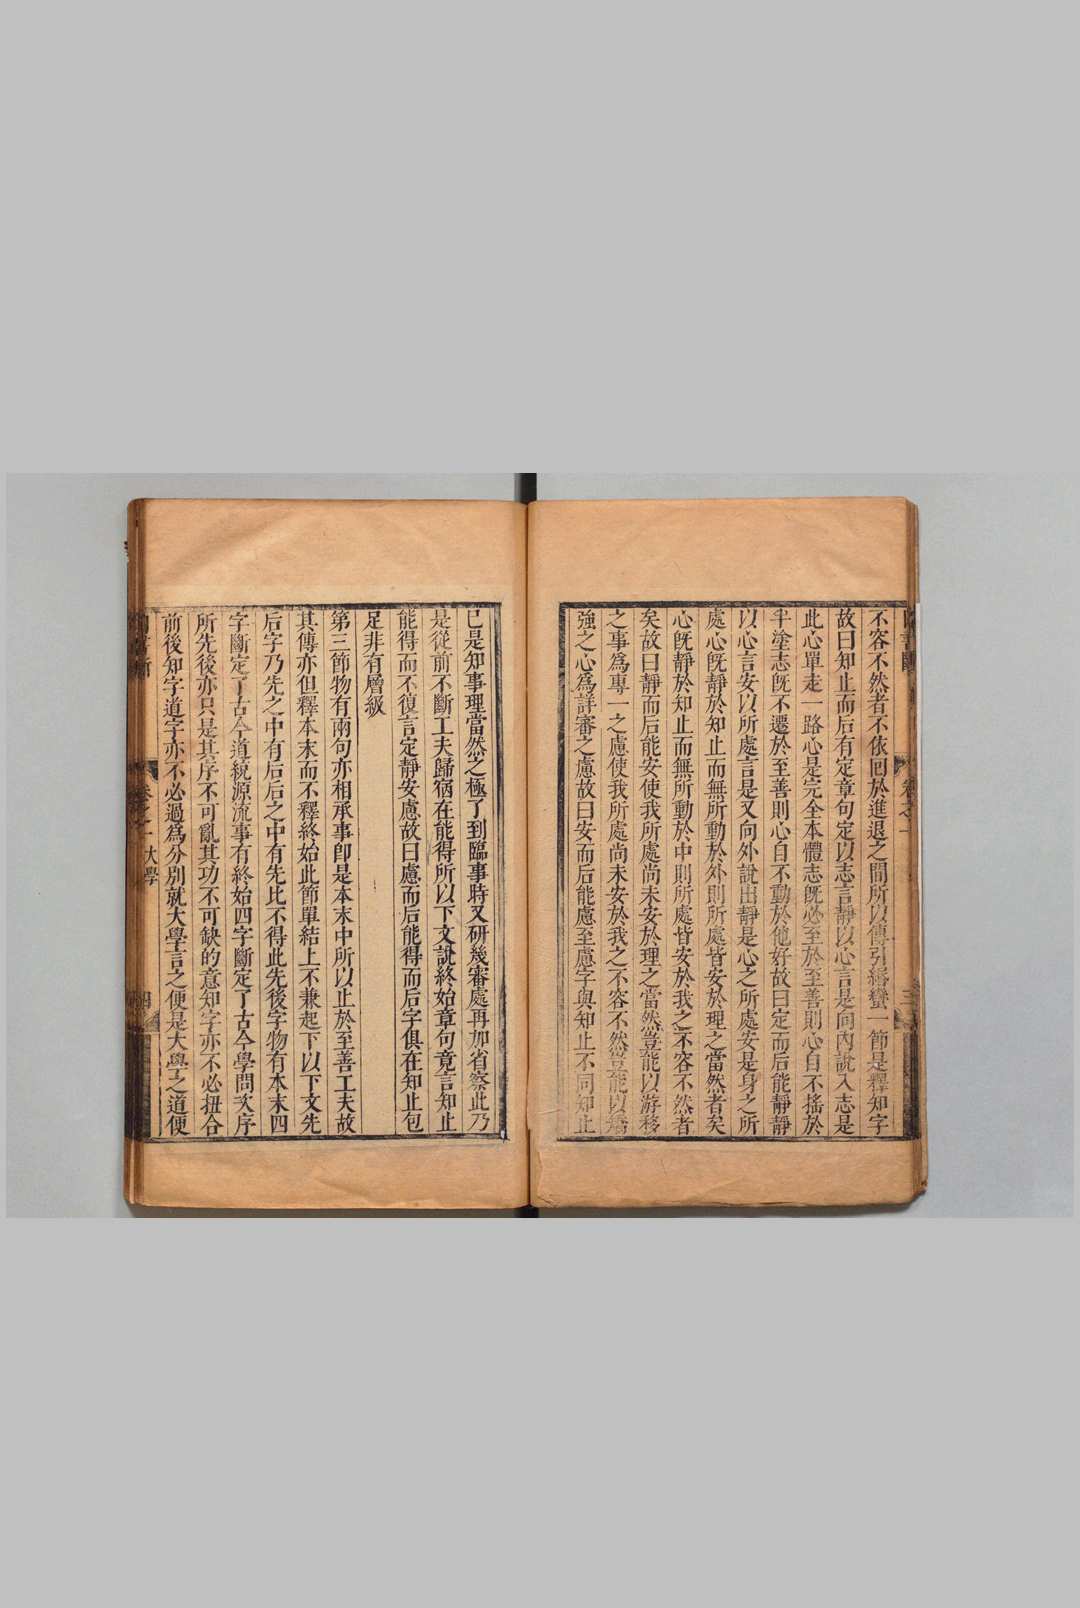 不容不然者不依回於進退之間所以傳引緡蠻一節是釋知字
故曰知止而后有定章句定以志言靜以心言是向內說入志是
此心單走一路心是完全本體志既必至於至善則心自不搖於
半塗志既不遷於至善則心自不動於他好故曰定而后能靜靜
以心言安以所處言是又向外說出靜是心之所處安是身之所
處心既靜於知止而無所動於外則所處皆安於理之當然者矣
心既靜於知止而無所動於中則所處皆安於我之不容不然者
矣故曰靜而后能安使我所處尚未安於理之當然豈能以游移
之事為專一之慮使我所處尚未安於我之不容不然豈能以矯
強之心為詳審之慮故曰安而后能慮至慮字與知止不同知止
已是知事理當然之極了到臨事時又研幾審處再加省察此乃
是從前不斷工夫歸宿在能得所以下文說終始章句竟言知止
能得而不復言定靜安慮故曰慮而后能得而后字俱在知止包
足非有層級
第三節物有兩句亦相承事即是本末中所以止於至善工夫故
其傳亦但釋本末而不釋終始此節單結上不兼起下以下文先
后字乃先之中有后后之中有先比不得此先後字物有本末四
字斷定了古今道統源流事有終始四字斷定了古今學問次序
所先後亦只是其序不可亂其功不可缺的意知字亦不必扭合
前後知字道字亦不必過為分別就大學言之便是大學之道便
卷之一
大學
四
卷之一
三